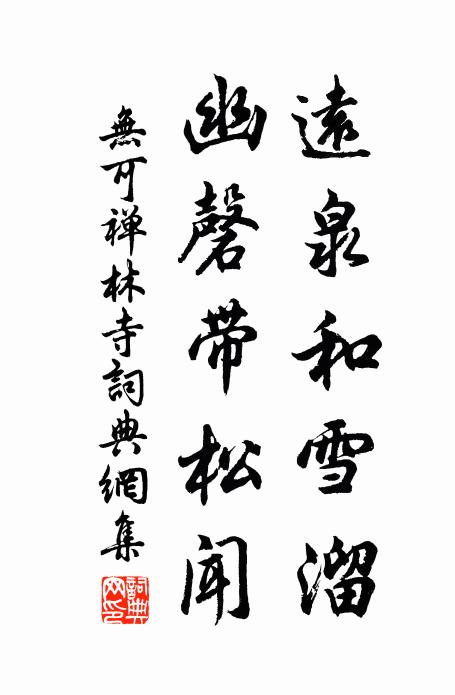 遠泉和雪溜
幽磬帶松聞
無可禅林寺詞典網集
詞典网印